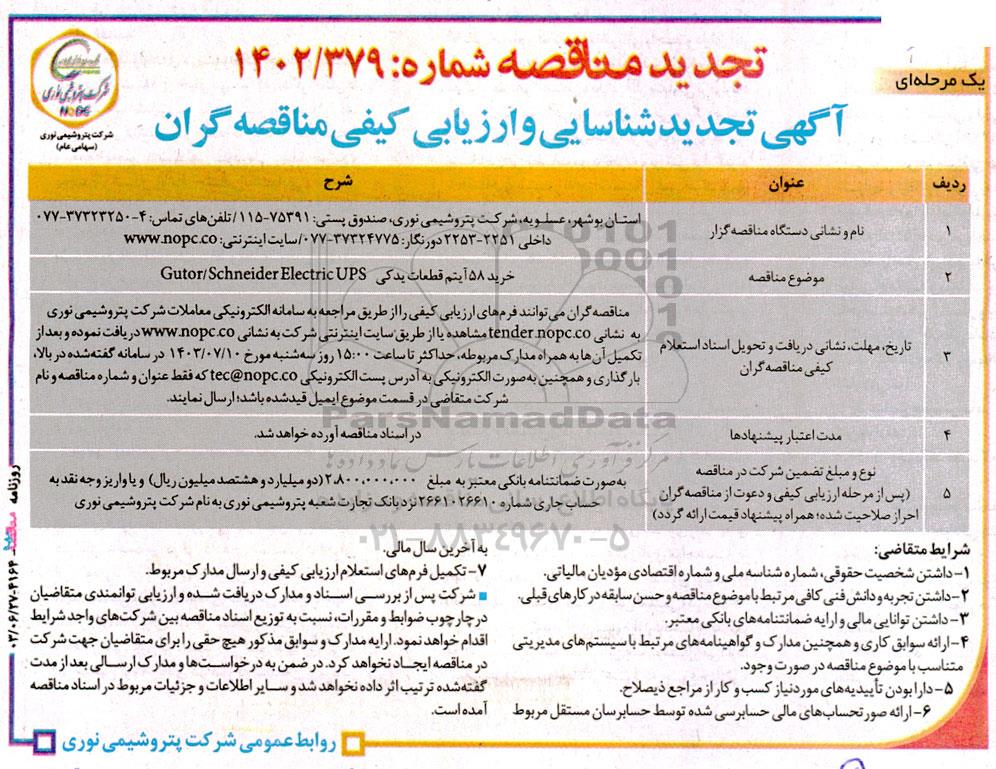 تجدید مناقصه شماره: ۱۴۰۲/۳۷۹
یک مرحله‌ای
آگهی تجدید شناسایی و ارزیابی کیفی مناقصه گران
شرکت پتروشیمی نوری
NOPC
شرکت پتروشیمی نوری
(سهامی عام)
ردیف عنوان شرح
۱ نام و نشانی دستگاه مناقصه گزار
استان بوشهر، عسلویه، شرکت پتروشیمی نوری، صندوق پستی: ۷۵۳۹۱-۱۱۵/ تلفن‌های تماس: ۴-۳۷۳۲۳۲۵۰-۰۷۷
داخلی ۲۲۵۱-۲۲۵۳ دورنگار: ۳۷۳۲۴۷۷۵-۰۷۷/ سایت اینترنتی: www.nopc.co
۲ موضوع مناقصه
خرید ۵۸ آیتم قطعات یدکی Gutor/Schneider Electric UPS
۳ تاریخ، مهلت، نشانی دریافت و تحویل اسناد استعلام
کیفی مناقصه گران
مناقصه گران می‌توانند فرم‌های ارزیابی کیفی را از طریق مراجعه به سامانه الکترونیکی معاملات شرکت پتروشیمی نوری
به نشانی tender.nopc.co مشاهده یا از طریق سایت اینترنتی شرکت به نشانی www.nopc.co دریافت نموده و بعد از
تکمیل آن‌ها به همراه مدارک مربوطه، حداکثر تا ساعت ۱۵:۰۰ روز سه‌شنبه مورخ ۱۴۰۳/۰۷/۱۰ در سامانه گفته‌شده در بالا،
بارگذاری و همچنین به‌صورت الکترونیکی به آدرس پست الکترونیکی tec@nopc.co که فقط عنوان و شماره مناقصه و نام
شرکت متقاضی در قسمت موضوع ایمیل قید شده باشد؛ ارسال نمایند.
۴ مدت اعتبار پیشنهادها
در اسناد مناقصه آورده خواهد شد.
۵ نوع و مبلغ تضمین شرکت در مناقصه
(پس از مرحله ارزیابی کیفی و دعوت از مناقصه گران
احراز صلاحیت شده؛ همراه پیشنهاد قیمت ارائه گردد)
به‌صورت ضمانتنامه بانکی معتبر به مبلغ ۲.۸۰۰.۰۰۰.۰۰۰ (دو میلیارد و هشتصد میلیون ریال) و یا واریز وجه نقد به
حساب جاری شماره ۲۶۶۱۰۲۶۶۱۰ نزد بانک تجارت شعبه پتروشیمی نوری به نام شرکت پتروشیمی نوری
ParsNamadData
مرکز فرآوری اطلاعات پارس نماد داده‌ها
۰۲۱-۸۸۳۴۹۶۷۰-۵
شرایط متقاضی:
۱- داشتن شخصیت حقوقی، شماره شناسه ملی و شماره اقتصادی مؤدیان مالیاتی.
۲- داشتن تجربه و دانش فنی کافی مرتبط با موضوع مناقصه و حسن سابقه در کارهای قبلی.
۳- داشتن توانایی مالی و ارایه ضمانتنامه‌های بانکی معتبر.
۴- ارائه سوابق کاری و همچنین مدارک و گواهینامه‌های مرتبط با سیستم‌های مدیریتی
متناسب با موضوع مناقصه در صورت وجود.
۵- دارا بودن تأییدیه‌های مورد نیاز کسب و کار از مراجع ذیصلاح.
۶- ارائه صورتحساب‌های مالی حسابرسی شده توسط حسابرسان مستقل مربوط
به آخرین سال مالی.
۷- تکمیل فرم‌های استعلام ارزیابی کیفی و ارسال مدارک مربوط.
شرکت پس از بررسی اسناد و مدارک دریافت شده و ارزیابی توانمندی متقاضیان
در چارچوب ضوابط و مقررات، نسبت به توزیع اسناد مناقصه بین شرکت‌های واجد شرایط
اقدام خواهد نمود. ارایه مدارک و سوابق مذکور هیچ حقی را برای متقاضیان جهت شرکت
در مناقصه ایجاد نخواهد کرد. در ضمن به درخواست‌ها و مدارک ارسالی بعد از مدت
گفته‌شده ترتیب اثر داده نخواهد شد و سایر اطلاعات و جزئیات مربوط در اسناد مناقصه
آمده است.
روابط عمومی شرکت پتروشیمی نوری
روزنامه مناقصه ۴۱۶۴-۰۳/۰۶/۲۷